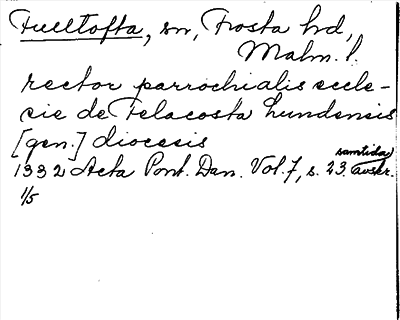 Fulltofta, sn, Frosta hd,
Malm. l.
rector parrochialis eccle-
sie de Felacosta Lundensis
[gen.] diocesis
samtida
1332 Acta Pont. Dan. Vol. 7, s. 23. avskr.
1/5